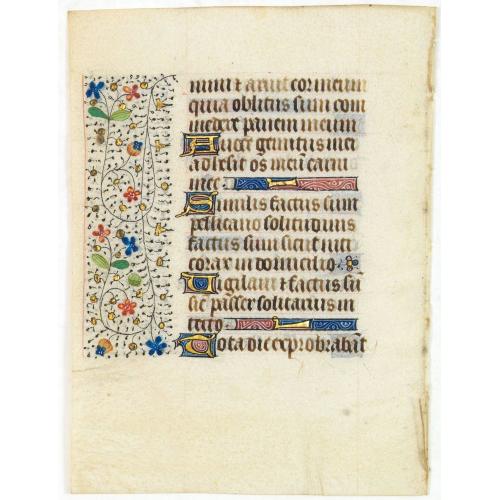 num et aruit cor meum
quia oblitus sum com
medere panem meum
A voce gemitus mei
adhesit os meū carni
mee
Similis factus sum
pellicano solitudinis
factus sum sicut nicti
corax in domicilio
Vigilavi et factus sū
sic passer solitarius in
tecto
Tota die exprobrabāt